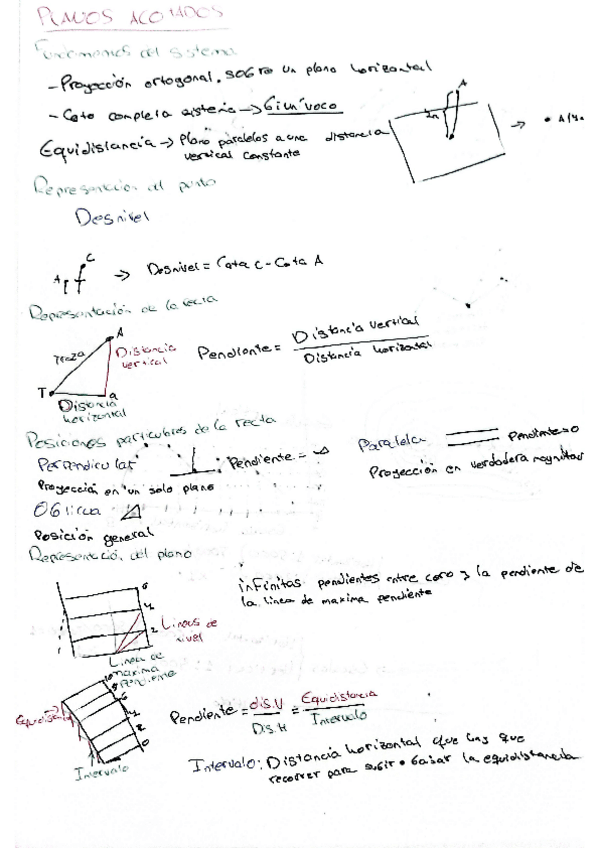 PLANOS ACOTADOS
Fundamentos del sistema
-Proyección ortogonal, sobre un plano horizontal
-Cota completa sistema → Biunívoco
Equidistancia → Plano paralelos a una distancia
vertical constante
2m
A
Representación del punto
Desnivel
C
A
→ Desnivel = Cota C - Cota A
Representación de la recta
A
Traza
Distancia
vertical
T
a
Distancia
horizontal
Pendiente = Distancia vertical
Distancia horizontal
Posiciones particulares de la recta
Perpendicular
Pendiente = ∞
Proyección en un solo plano
Paralela
Pendiente=0
Proyección en verdadera magnitud
Oblicua
Posición general
Representación del plano
6
4
2
Lineas de
nivel
Linea de
maxima
pendiente
infinitas pendientes entre cero y la pendiente de
la linea de maxima pendiente
6
4
2
0
Intervalo
Pendiente = dis.V = Equidistancia
Dis.H Intervalo
Intervalo: Distancia horizontal que hay que
recorrer para subir o bajar la equidistancia